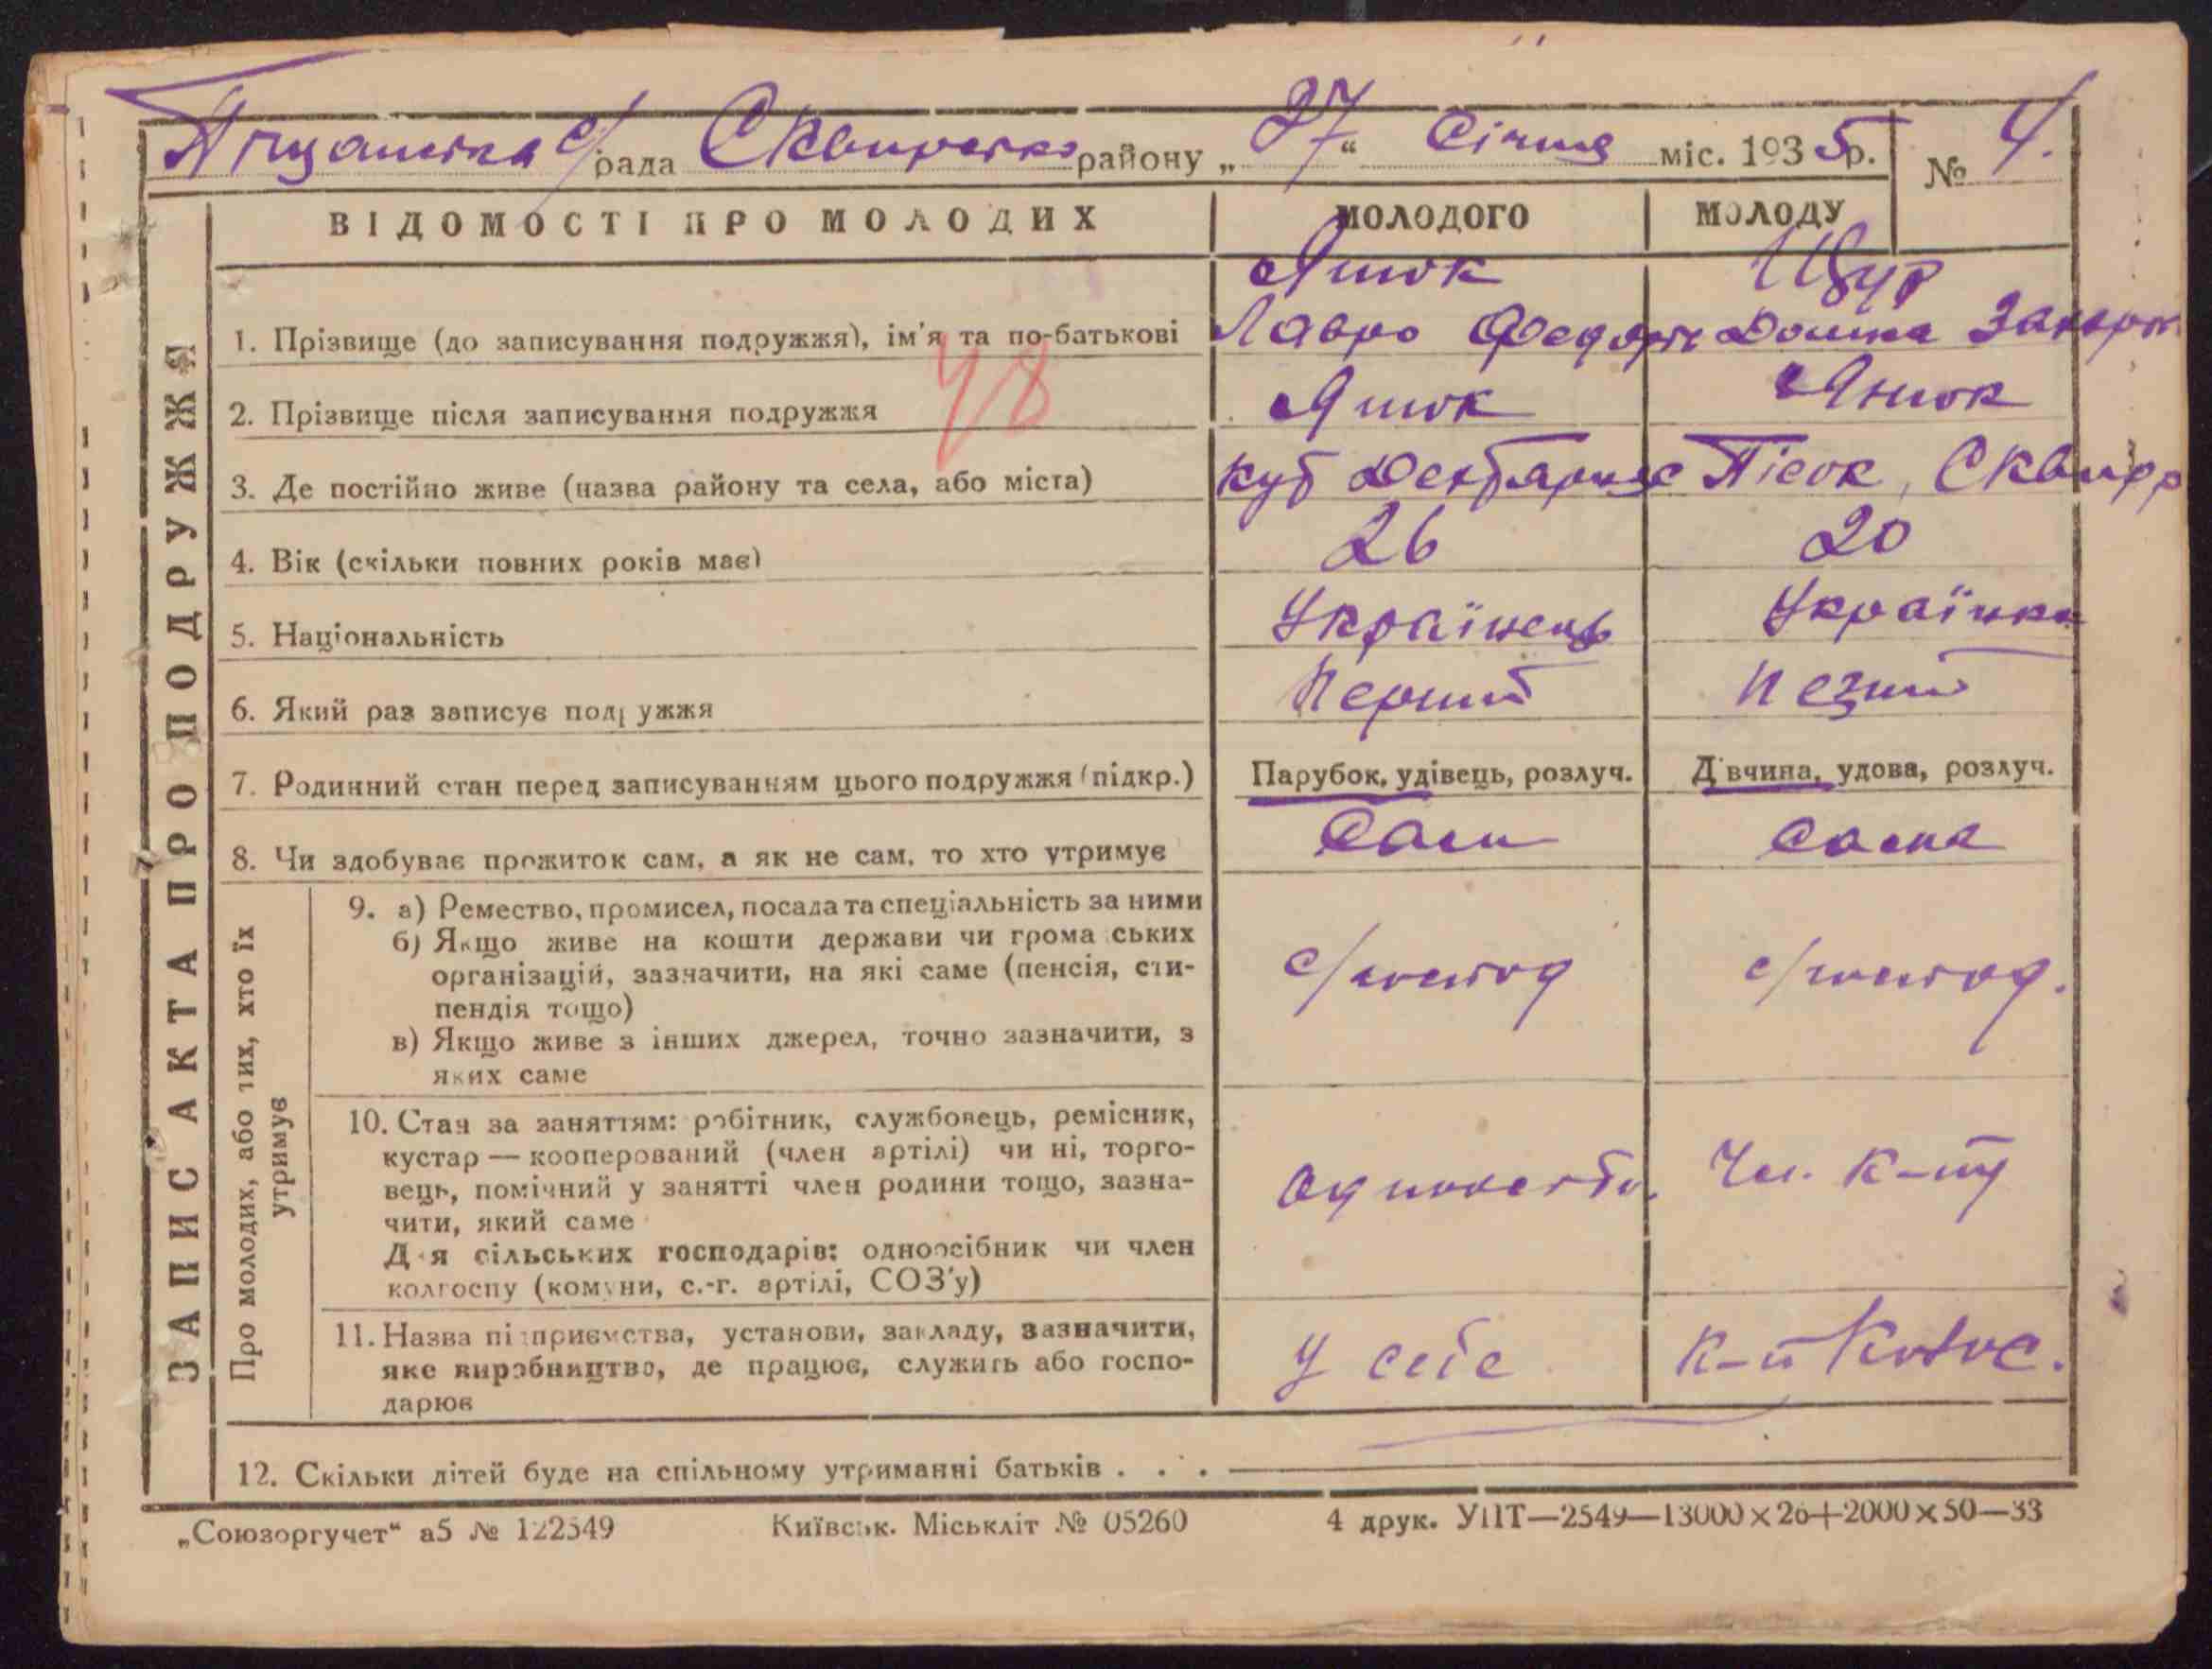 Піщанська с/рада Сквирсько району „27“ Січня міс. 1935р. № 4.
ВІДОМОСТІ ПРО МОЛОДИХ МОЛОДОГО МОЛОДУ
ЗАПИС АКТА ПРО ПОДРУЖЖЯ
Щур
1. Прізвище (до записування подружжя), ім'я та по-батькові Лавро Федор Домка Захарк
48
2. Прізвище після записування подружжя
3. Де постійно живе (назва району та села, або міста) Пісок, Сквирр
4. Вік (скільки повних років має) 26 20
5. Національність Українець Українка
6. Який раз записує подружжя Перший
7. Родинний стан перед записуванням цього подружжя (підкр.) Парубок, удівець, розлуч. Дівчина, удова, розлуч.
8. Чи здобуває прожиток сам, а як не сам, то хто утримує Сам Сама
Про молодих, або тих, хто їх утримує
9. а) Ремество, промисел, посада та спеціальність за ними
б) Якщо живе на кошти держави чи громадських
організацій, зазначити, на які саме (пенсія, сти-
пендія тощо)
с/господ с/господ.
в) Якщо живе з інших джерел, точно зазначити, з
яких саме
10. Стан за заняттям: робітник, службовець, ремісник,
кустар — кооперований (член артілі) чи ні, торго-
вець, помічний у занятті член родини тощо, зазна-
чити, який саме
Чл. к-пу
Для сільських господарів: одноосібник чи член
колгоспу (комуни, с.-г. артілі, СОЗ'у)
11. Назва підприємства, установи, закладу, зазначити,
яке виробництво, де працює, служить або госпо-
дарює
у себе к-п Колос.
12. Скільки дітей буде на спільному утриманні батьків . . .
„Союзоргучет“ а5 № 122549 Київськ. Міськліт № 05260 4 друк. УПТ—2549—13000×26+2000×50—33